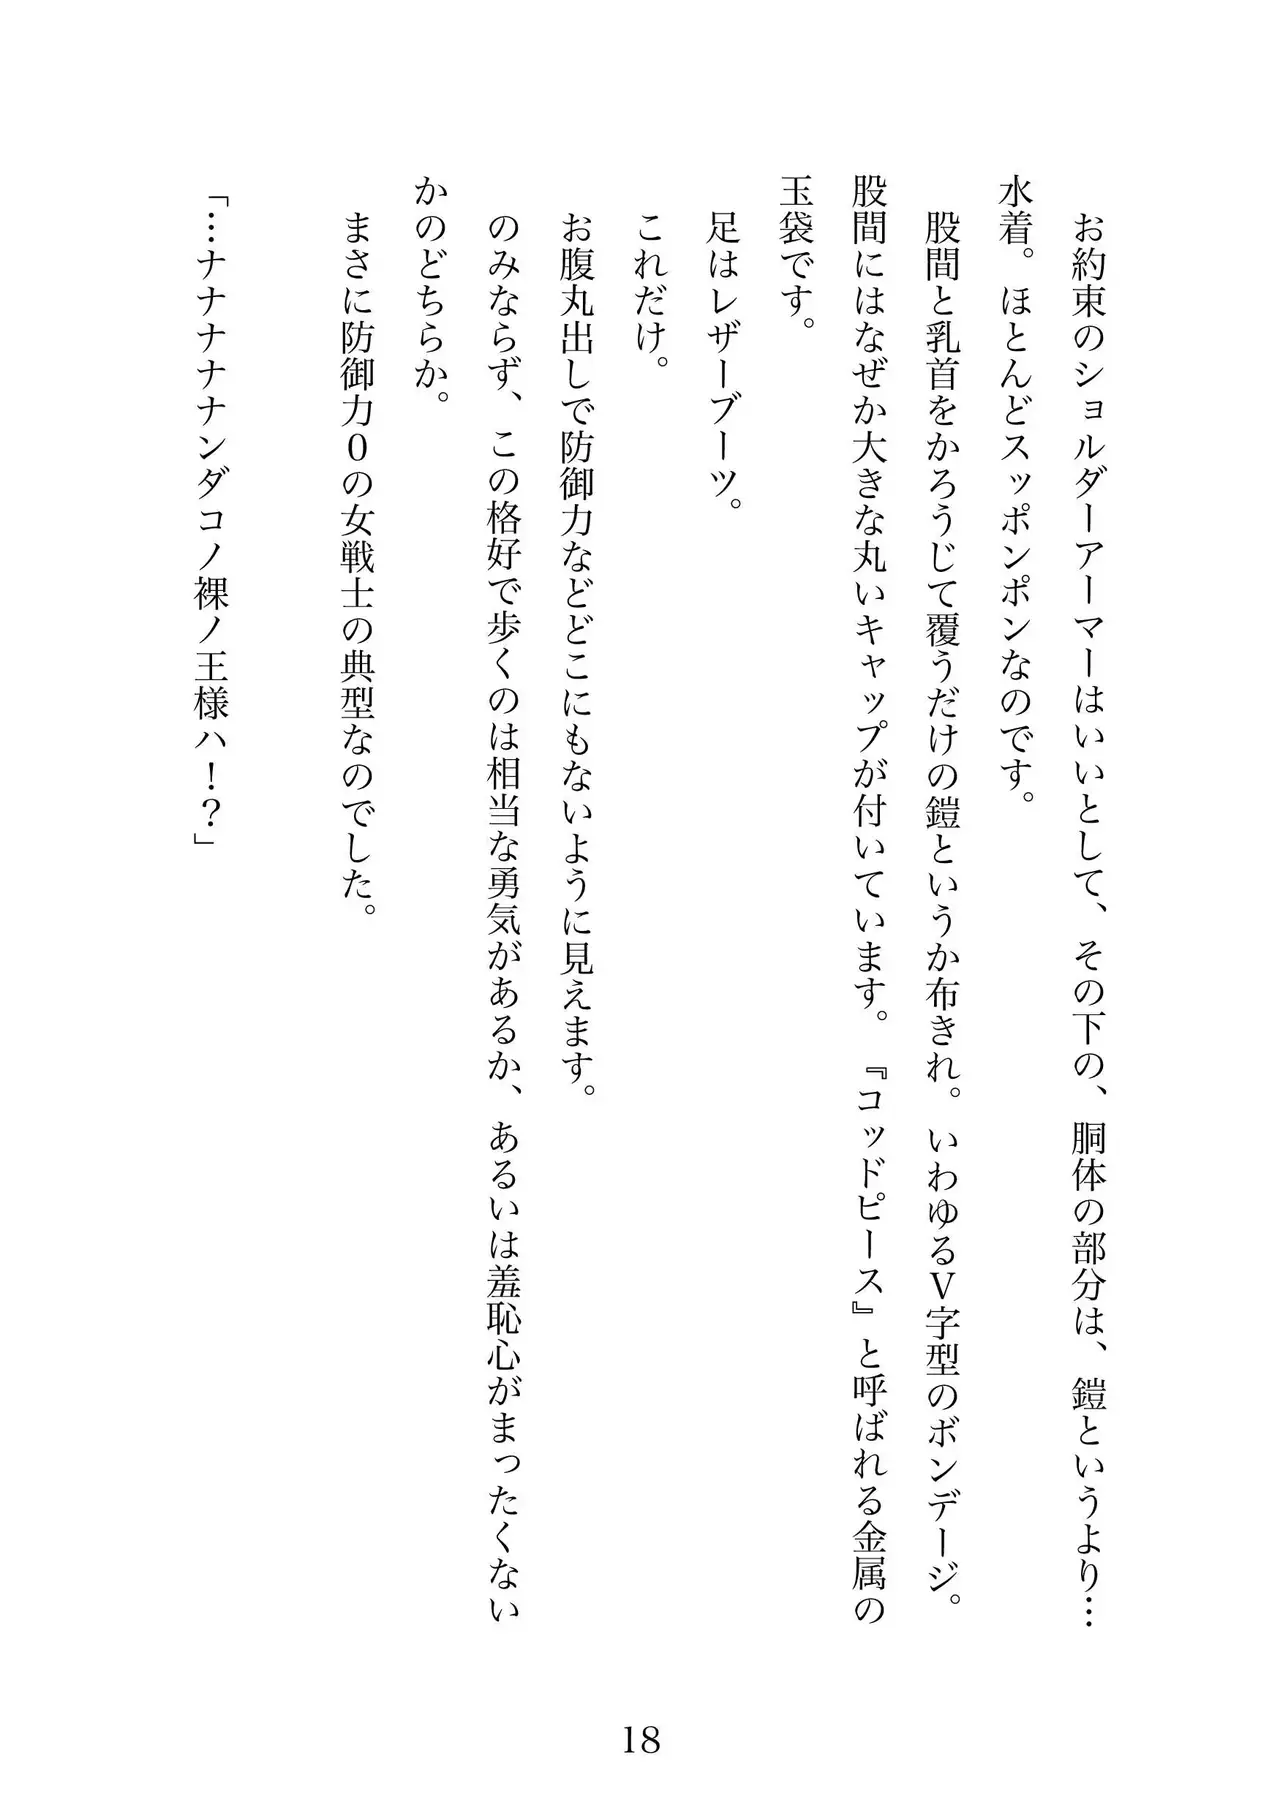 お約束のショルダーアーマーはいいとして、その下の、胴体の部分は、鎧というより…
水着。ほとんどスッポンポンなのです。
股間と乳首をかろうじて覆うだけの鎧というか布きれ。いわゆるV字型のボンデージ。
股間にはなぜか大きな丸いキャップが付いています。『コッドピース』と呼ばれる金属の
玉袋です。
足はレザーブーツ。
これだけ。
お腹丸出しで防御力などどこにもないように見えます。
のみならず、この格好で歩くのは相当な勇気があるか、あるいは羞恥心がまったくない
かのどちらか。
まさに防御力０の女戦士の典型なのでした。
「…ナナナナナンダコノ裸ノ王様ハ！？」
18